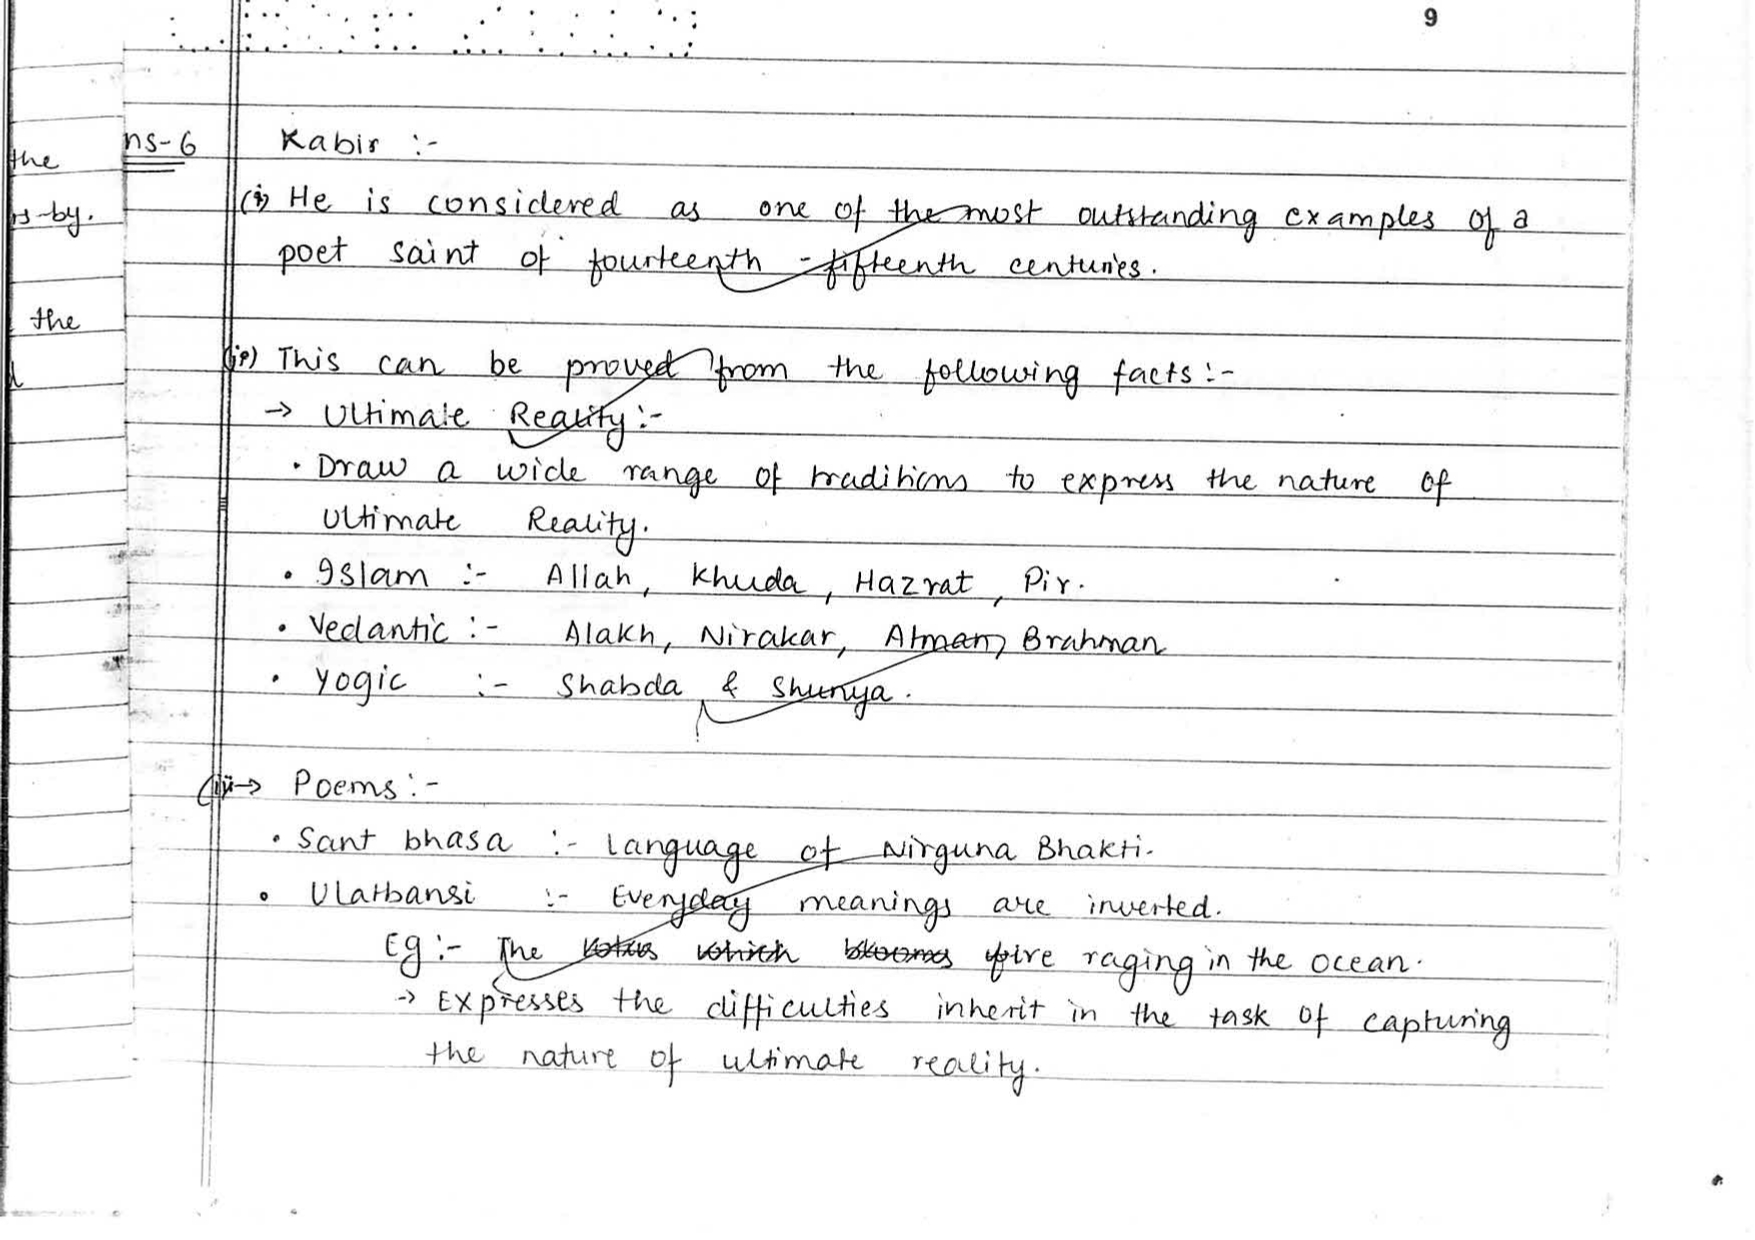 9
the
ns-6 Kabir :-
(i) He is considered as one of the most outstanding examples of a
rs-by.
poet saint of fourteenth - fifteenth centuries.
the
(ii) This can be proved from the following facts :-
→ Ultimate Reality :-
• Draw a wide range of traditions to express the nature of
Ultimate Reality.
• Islam :- Allah, Khuda, Hazrat, Pir.
• Vedantic :- Alakh, Nirakar, Atman, Brahman
• Yogic :- Shabda & Shunya.
(iii→ Poems :-
• Sant bhasa :- language of Nirguna Bhakti.
• Ulatbansi :- Everyday meanings are inverted.
Eg :- The lotus which blooms fire raging in the ocean.
→ Expresses the difficulties inherit in the task of capturing
the nature of ultimate reality.